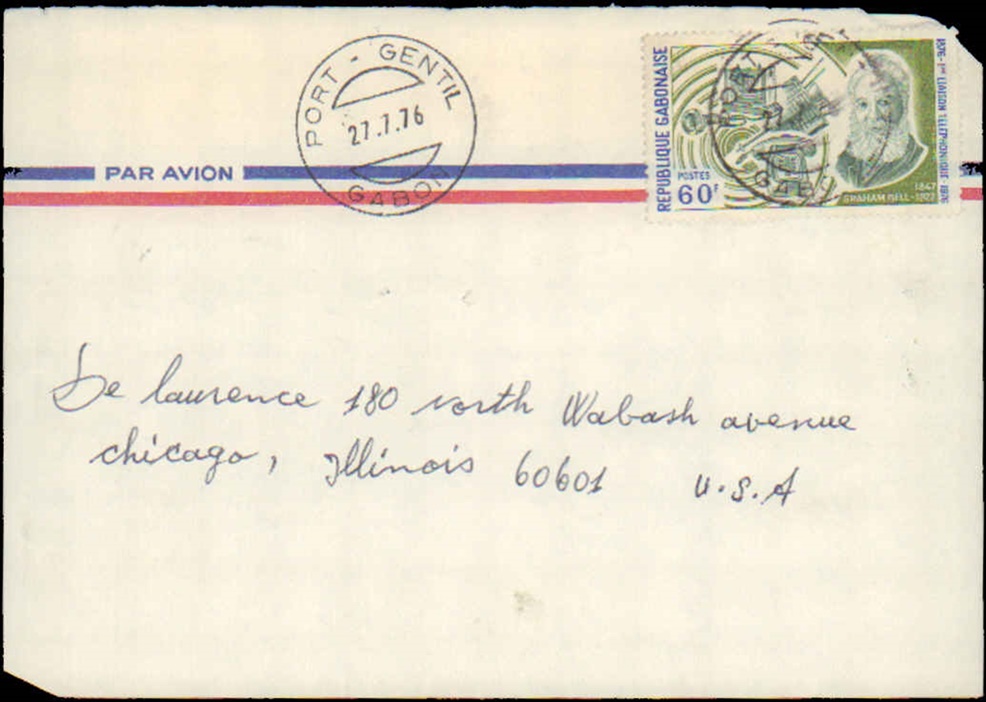 PORT - GENTIL
27.7.76
GABON
PAR AVION
REPUBLIQUE GABONAISE
POSTES
60F
1876 - 1ère LIAISON TELEPHONIQUE - 1976
1847
GRAHAM BELL - 1922
PORT
27
GABO
De laurence 180 north Wabash avenue
chicago, Illinois 60601 U.S.A